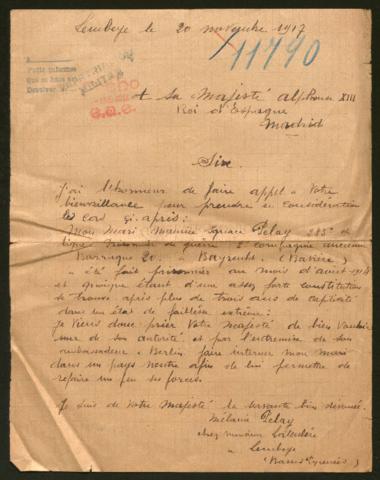 Lembeye le 20 novembre 1917
11790
Para informe
Devolver
A sa Majesté Alphonse XIII
Roi d'Espagne
Madrid
Sire
J'ai l'honneur de faire appel à Votre
bienveillance pour prendre en considération
les cas ci-après:
Mon Mari Pelay 285e de
ligne prisonnier de guerre 2 compagnie
Barraque 20. à Bayreuth (Bavière)
a été fait prisonnier au mois d'août 1914
et quoique étant d'une assez forte constitution
se trouve après plus de trois ans de captivité
dans un état de faiblesse extrême:
Je Viens donc prier Votre Majesté de bien Vouloir
user de son autorité et par l'entremise de son
ambassadeur à Berlin faire interner mon mari
dans un pays neutre afin de lui permettre de
refaire un peu ses forces.
Je suis de Votre Majesté la servante bien dévouée.
Mélanie Pelay
chez monsieur
à Lembeye
(Basses Pyrénées)